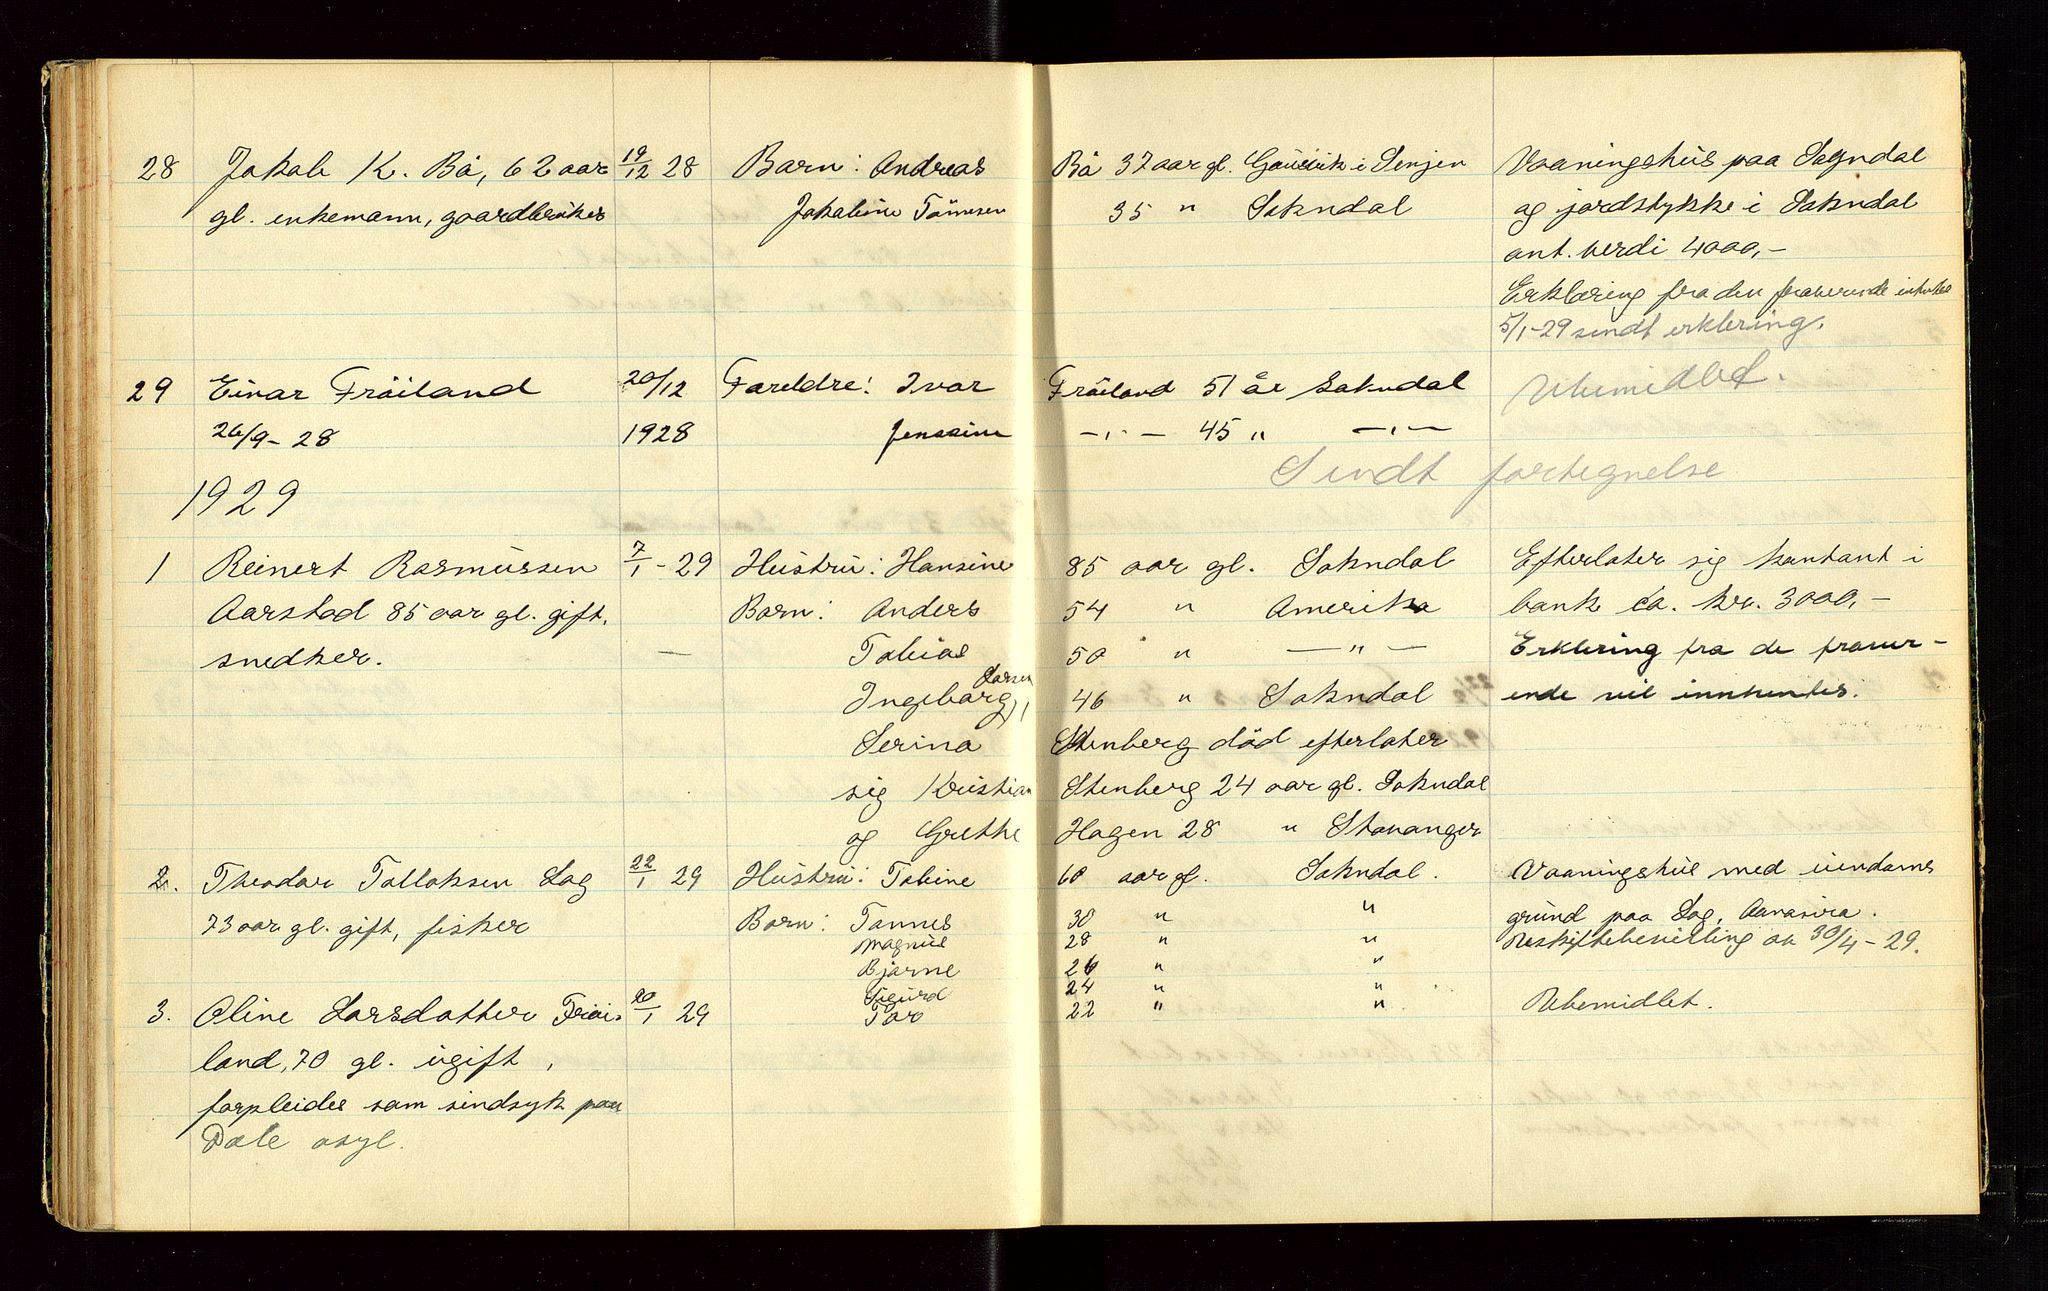 28 Jakob K. Bå, 62 aar 19/12 28 Barn: Andreas Bå 37 aar gl. i Senjen Vaaningshus paa Sogndal
gl. enkemann, gaardbruker Jakobine Tønnesen 35 " Sokndal og jordstykke i Sokndal
ant. verdi 4000,-
Erklæring fra den fraværende
5/1-29 sendt erklering.
29 Einar Fröiland 20/12 Foreldre: Ivar Fröiland 51 år Sokndal Ubemidlet.
26/9-28 1928 Jenssine -"- 45 " -"-
Sendt fortegnelse
1929
1 Reinert Rasmussen 7/1-29 Hustru: Hansine 85 aar gl. Sokndal Efterlater sig kontant i
Aarstad 85 aar gl. gift, Barn: Anders 54 " Amerika bank ca. kr. 3000,-
snedker. — Tobias 50 " —"— Erklering fra de fraver-
Ingeborg Larsen 46 " Sokndal ende vil innhentes.
Serina Stenberg död efterlater
sig Kristian Stenberg 24 aar gl. Sokndal
og Grethe Hagen 28 " Stavanger
2. Theodor Tollaksen Log 22/1 29 Hustru: Tobine 60 aar gl. Sokndal. Vaaningshus med eiendoms
73 aar gl. gift, fisker Barn: Tønnes 30 " " grund paa Log, Aanasira.
Magnus 28 " " Uskiftebevilling av 30/4-29.
Bjarne 26 " "
Sigurd 24 " "
3. Oline Larsdatter Fröi- 20/1 29 Tor 22 " " Ubemidlet.
land, 70 gl. ugift,
forpleides som sindsyk paa
Dale asyl.